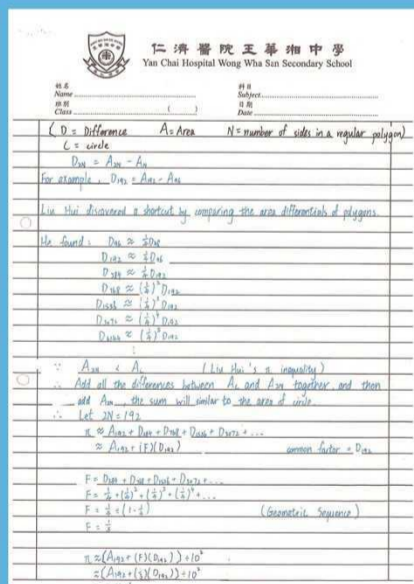 仁濟醫院王華湘中學
Yan Chai Hospital Wong Wha San Secondary School
姓名
Name
科目
Subject
班別
Class ( )
日期
Date
( D = Difference A = Area N = number of sides in a regular polygon)
C = circle
D₂ₙ = A₂ₙ - Aₙ
For example, D₁₉₂ = A₁₉₂ - A₉₆
Liu Hui discovered a shortcut by comparing the area differentials of polygons.
He found: D₉₆ ≈ ¼D₄₈
D₁₉₂ ≈ ¼D₉₆
D₃₈₄ ≈ ¼D₁₉₂
D₇₆₈ ≈ (¼)²D₁₉₂
D₁₅₃₆ ≈ (¼)³D₁₉₂
D₃₀₇₂ ≈ (¼)⁴D₁₉₂
D₆₁₄₄ ≈ (¼)⁵D₁₉₂
⋮
∵ A₂ₙ < (Liu Hui's inequality)
∴ Add all the differences between and A₂ₙ together and then
add A₂ₙ, the sum will similar to the area of circle.
∴ Let 2N = 192
π ≈ A₁₉₂ + D₃₈₄ + D₇₆₈ + D₁₅₃₆ + D₃₀₇₂ + ...
≈ A₁₉₂ + (F)(D₁₉₂) common factor = D₁₉₂
F = D₃₈₄ + D₇₆₈ + D₁₅₃₆ + D₃₀₇₂ + ...
F = ¼ + (¼)² + (¼)³ + (¼)⁴ + ...
F = ¼ ÷ (1 - ¼) (Geometric Sequence)
F = ⅓
π ≈ (A₁₉₂ + (F)(D₁₉₂)) ÷ 10²
≈ (A₁₉₂ + (⅓)(D₁₉₂)) ÷ 10²